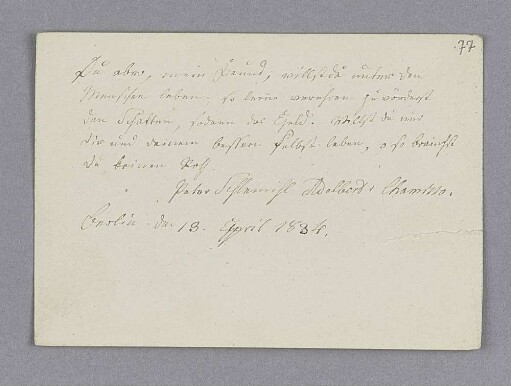 77
Du aber, mein Freund, willst du unter den
Menschen leben, so lerne verehren zuvörderst
den Schatten, sodann das Geld. Willst du nur
dir und deinem bessern Selbst leben, o so brauchst
du keinen Rath.
Peter Schlemihl Adelbert v Chamisso.
Berlin den 13. April 1834.